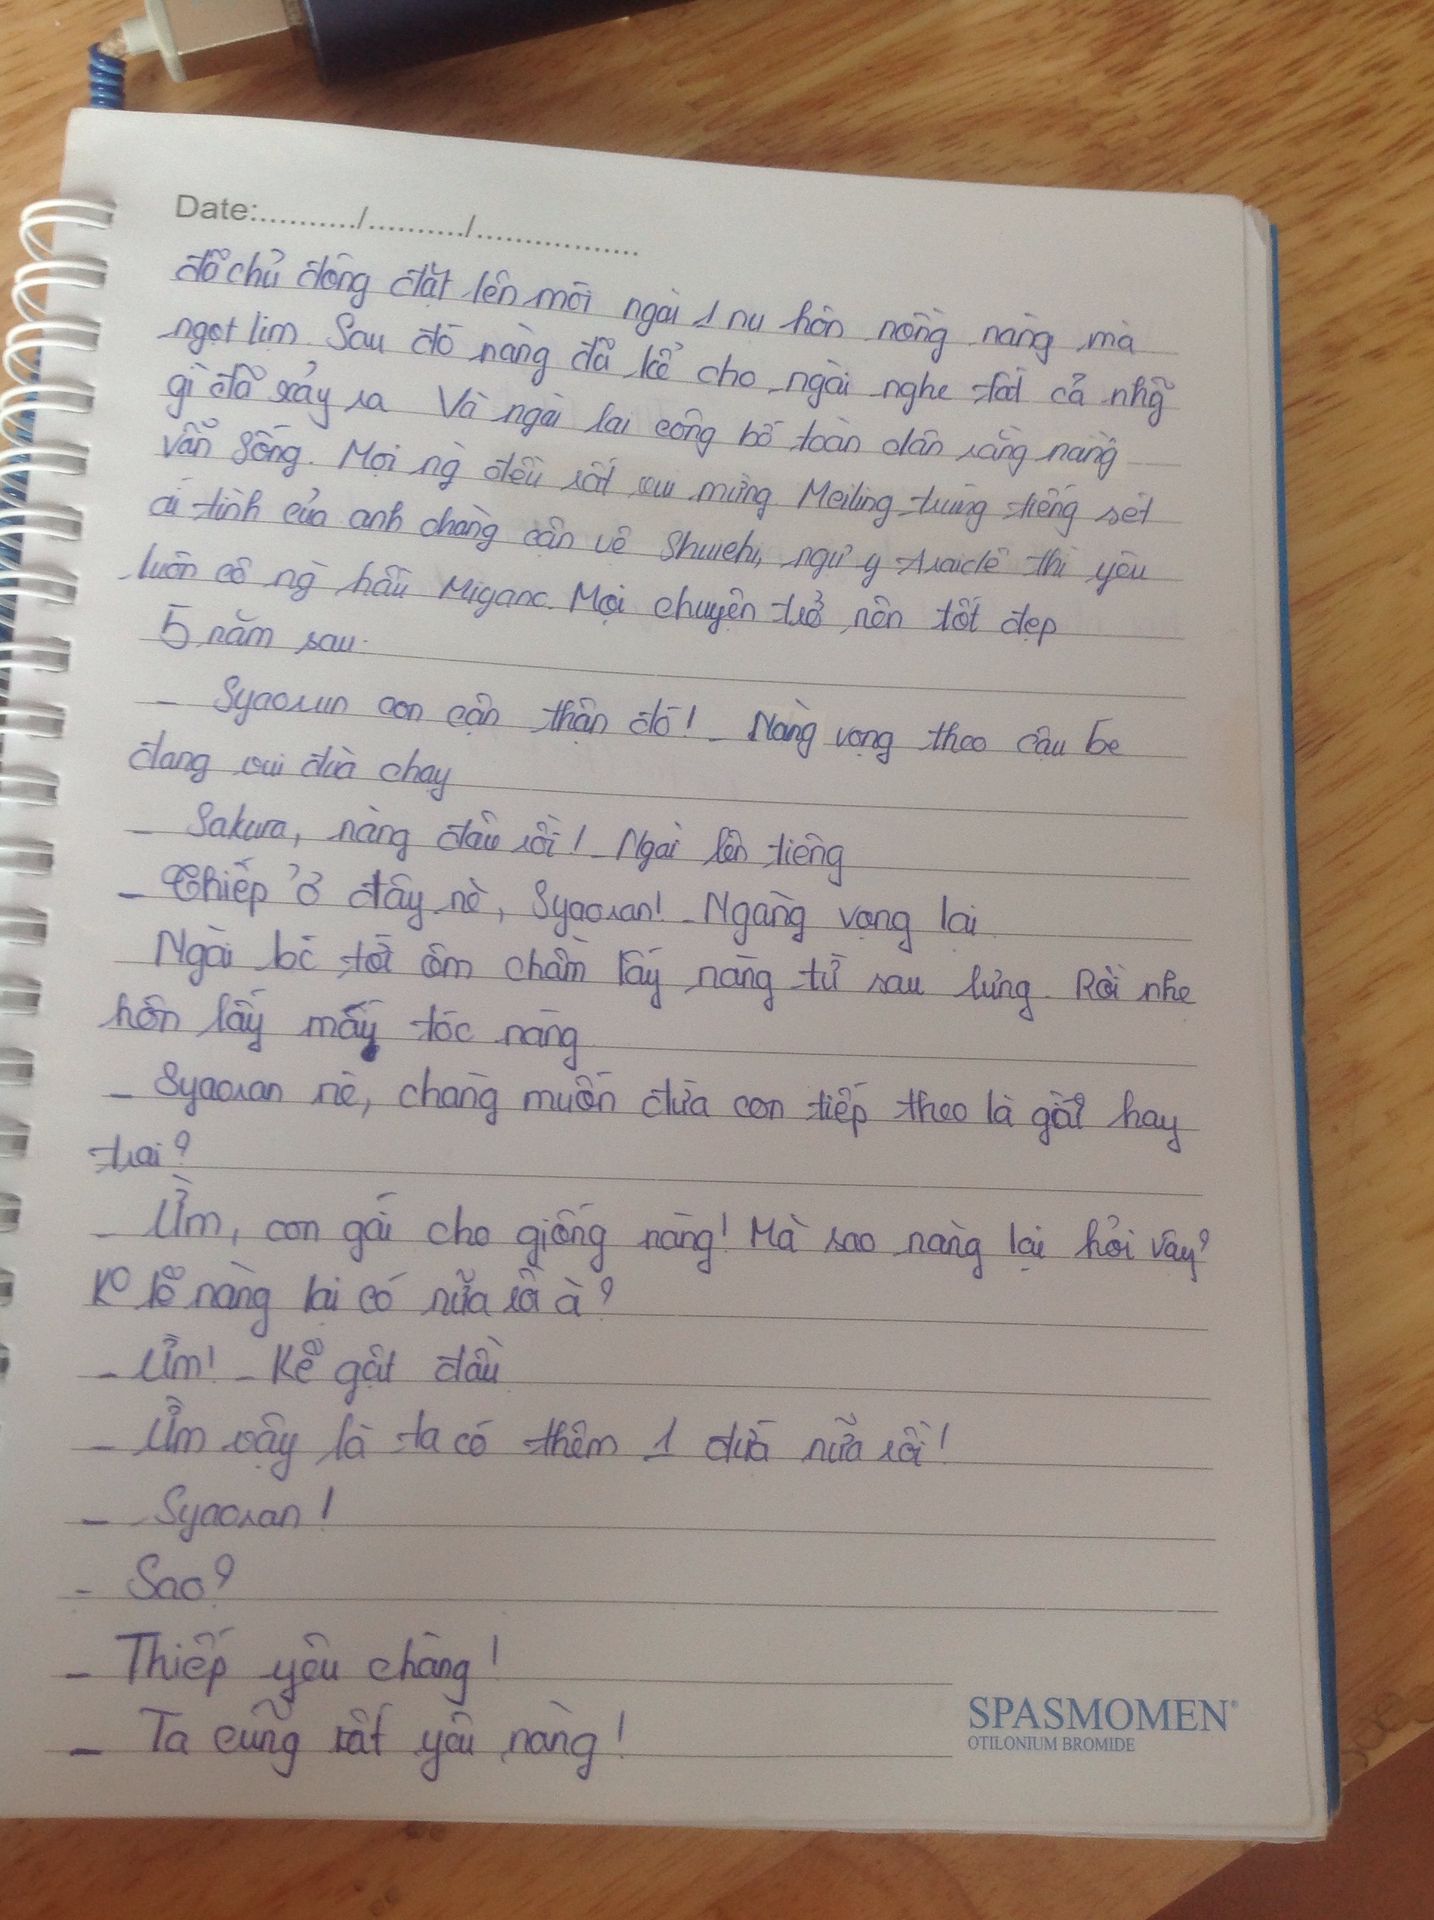 Date:........../........../................
đã chủ động đặt lên môi ngài 1 nụ hôn nồng nàng mà
ngọt lịm. Sau đó nàng đã kể cho ngài nghe tất cả nhữ
gì đã xảy ra. Và ngài lại công bố toàn dân rằng nàng
vẫn sống. Mọi ng đều rất vui mừng Meiling trúng tiếng sét
ái tình của anh chàng cận vệ ngự y thì yêu
luôn cô ng hầu Mọi chuyện trở nên tốt đẹp
5 năm sau.
- con cận thận đó! - Nàng vọng theo cậu bé
đang vui đùa chạy
- Sakura, nàng đâu rồi! - Ngài lên tiếng
- Thiếp ở đây nè, Syaoran! - Ngàng vọng lại
Ngài bc tới ôm chầm lấy nàng từ sau lưng. Rồi nhẹ
hôn lấy mấy tóc nàng
- Syaoran nè, chàng muốn đứa con tiếp theo là gái hay
trai?
- Ừm, con gái cho giống nàng! Mà sao nàng lại hỏi vậy?
Ko lẽ nàng lại có nữa rồi à?
- Ừm! - Kẽ gật đầu
- Ừm vậy là ta có thêm 1 đứa nữa rồi!
- Syaoran!
- Sao?
- Thiếp yêu chàng!
- Ta cũng rất yêu nàng!
SPASMOMEN®
OTILONIUM BROMIDE